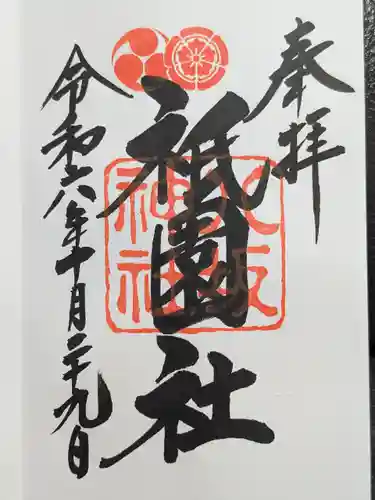 奉拝
祇園社
八坂
神社
令和六年十月二十九日